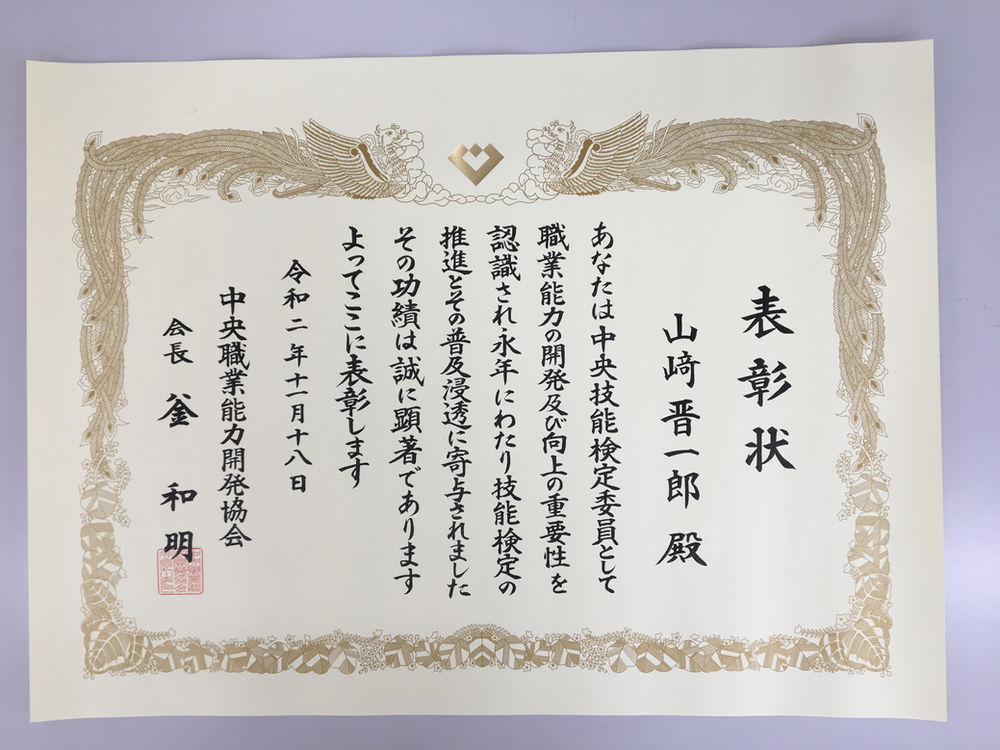 表彰状
山﨑晋一郎 殿
あなたは中央技能検定委員として
職業能力の開発及び向上の重要性を
認識され永年にわたり技能検定の
推進とその普及浸透に寄与されました
その功績は誠に顕著であります
よってここに表彰します
令和二年十一月十八日
中央職業能力開発協会
会長 釜 和明